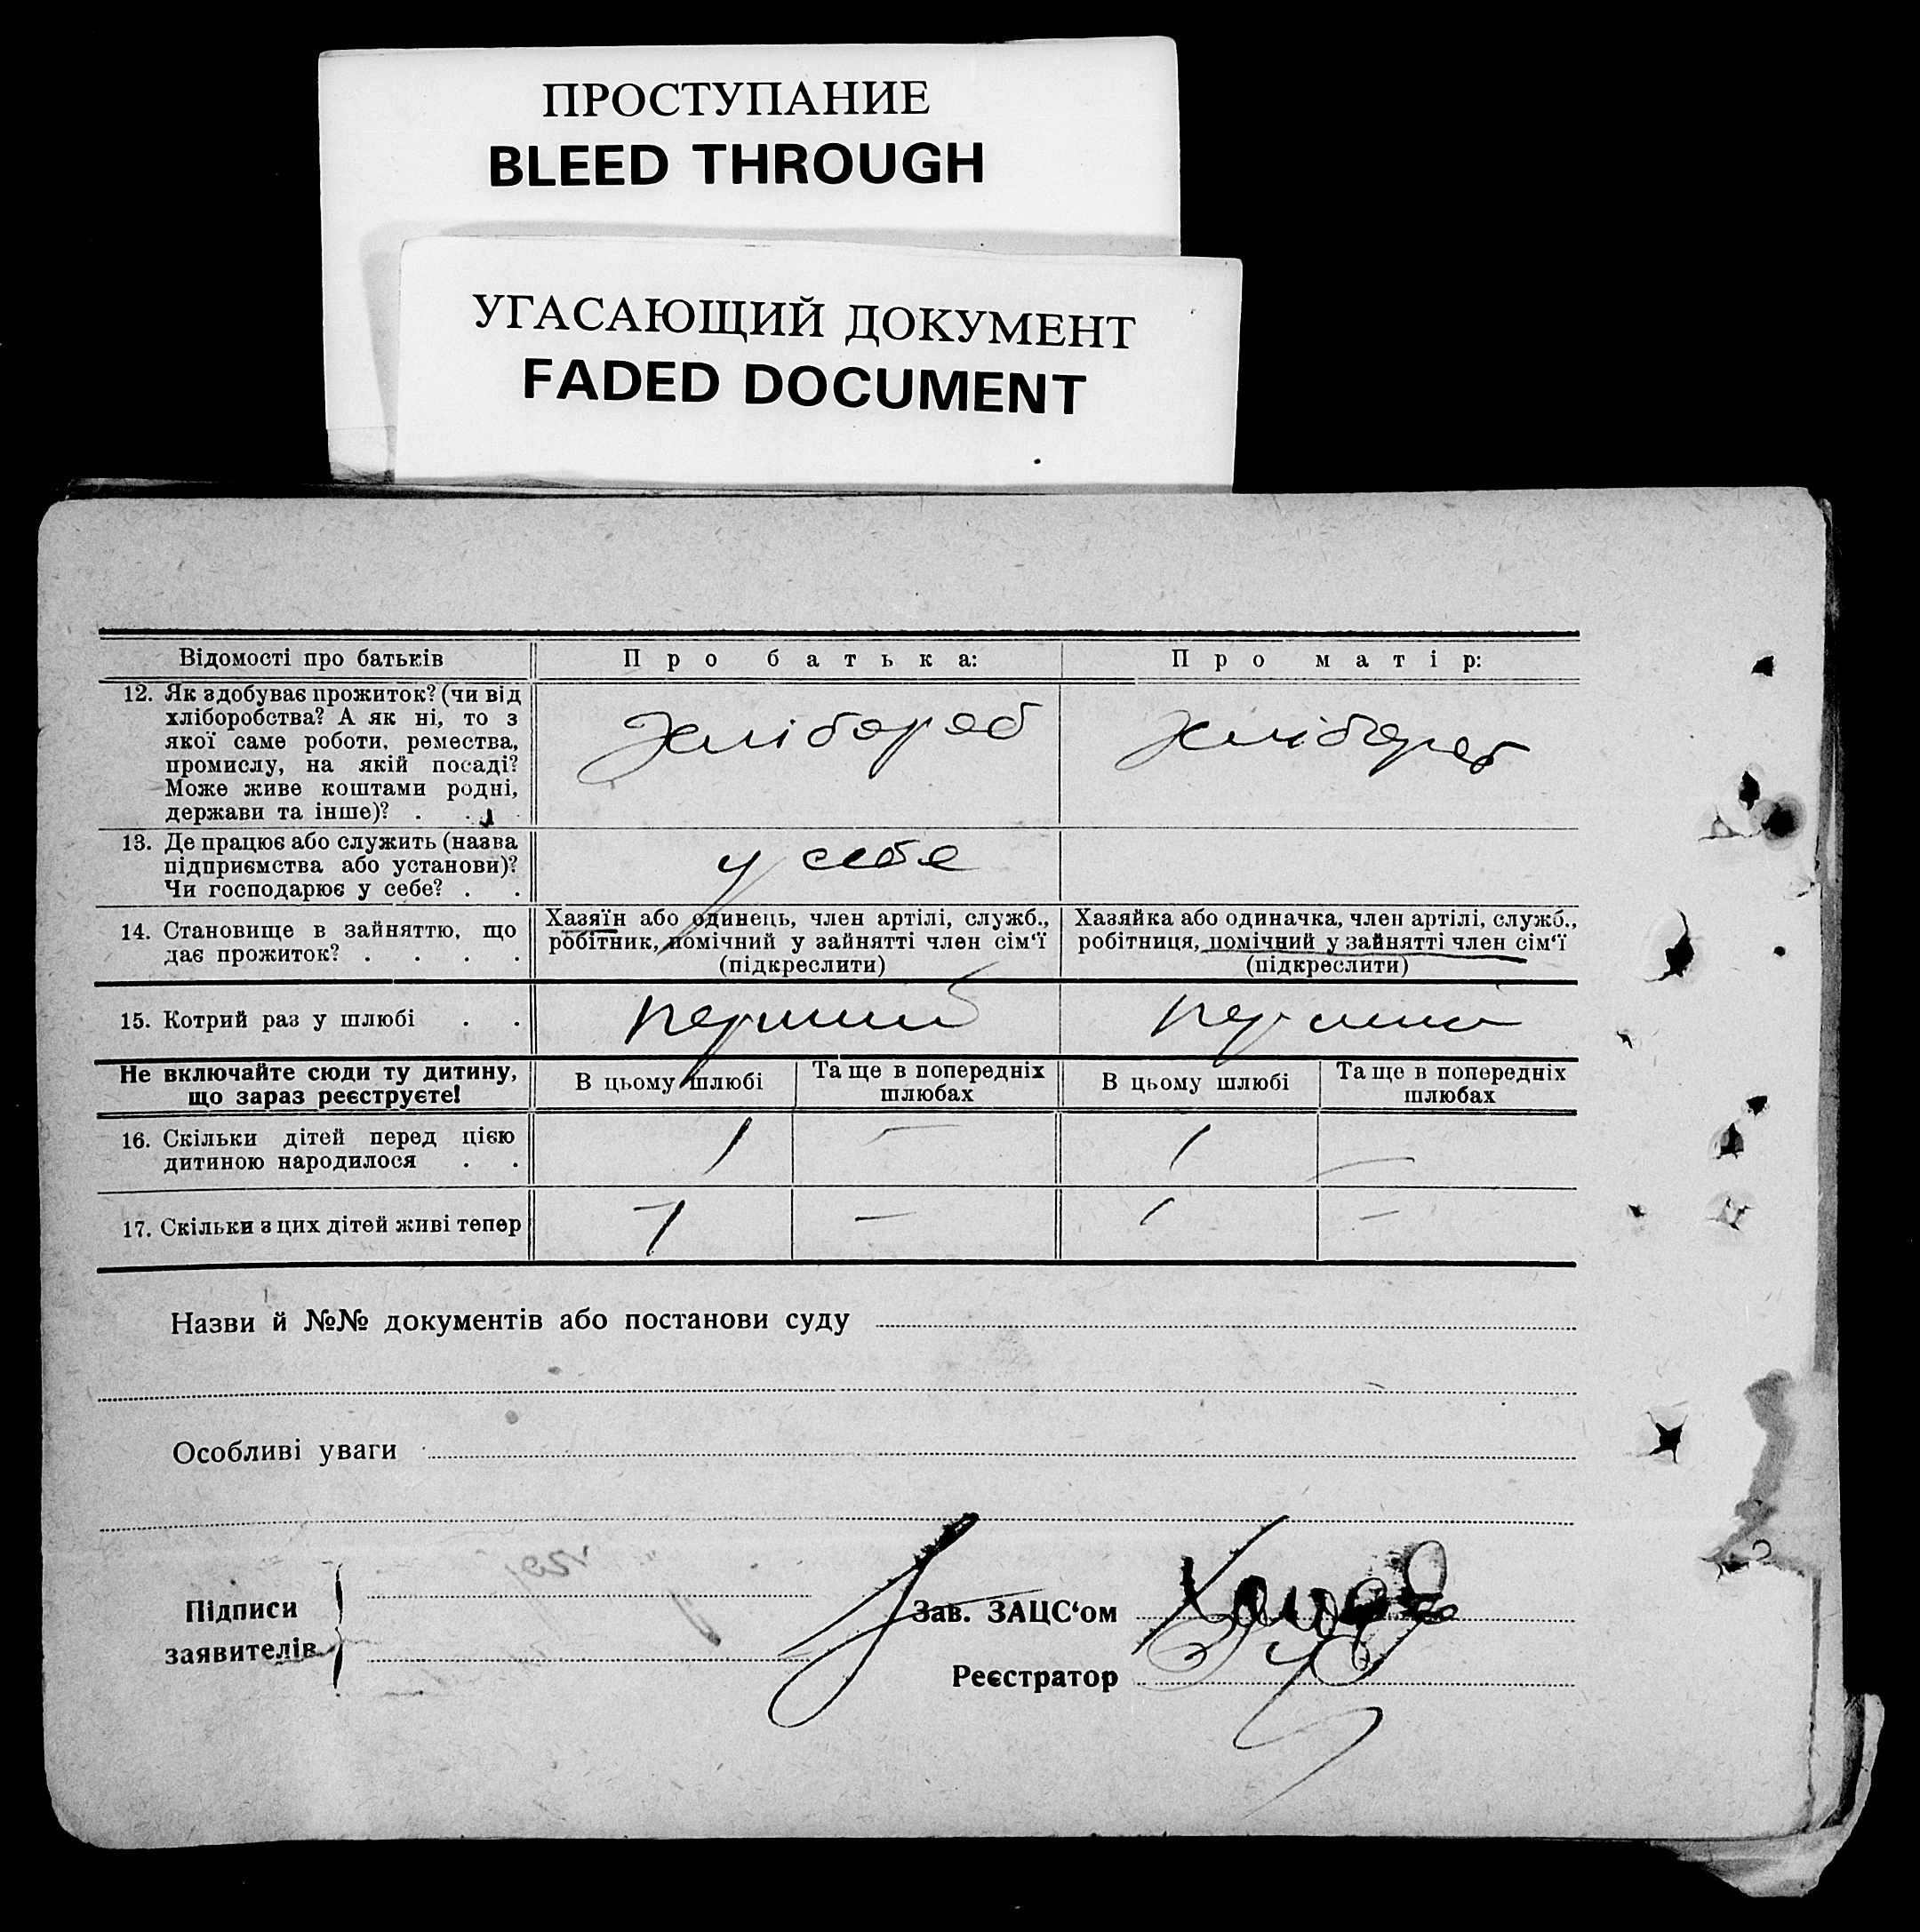 ПРОСТУПАНИЕ
BLEED THROUGH
УГАСАЮЩИЙ ДОКУМЕНТ
FADED DOCUMENT
Відомості про батьків Про батька: Про матір:
12. Як здобуває прожиток? (чи від
хліборобства? А як ні, то з
якої саме роботи, ремества,
промислу, на якій посаді?
Може живе коштами родні,
держави та інше)? . .
Хлібороб Хлібороб
13. Де працює або служить (назва
підприємства або установи)?
Чи господарює у себе? . .
у себе
14. Становище в зайняттю, що
дає прожиток? . . . .
Хазяїн або одинець, член артілі, служб.,
робітник, помічний у зайнятті член сім‘ї
(підкреслити)
Хазяйка або одиначка, член артілі, служб.,
робітниця, помічний у зайнятті член сім‘ї
(підкреслити)
15. Котрий раз у шлюбі . . перший перший
Не включайте сюди ту дитину,
що зараз реєструєте!
В цьому шлюбі
Та ще в попередніх
шлюбах
В цьому шлюбі
Та ще в попередніх
шлюбах
16. Скільки дітей перед цією
дитиною народилося . .
1 — 1 —
17. Скільки з цих дітей живі тепер 1 — 1 —
Назви й №№ документів або постанови суду
Особливі уваги
Підписи
заявителів
Зав. ЗАЦС‘ом
Реєстратор